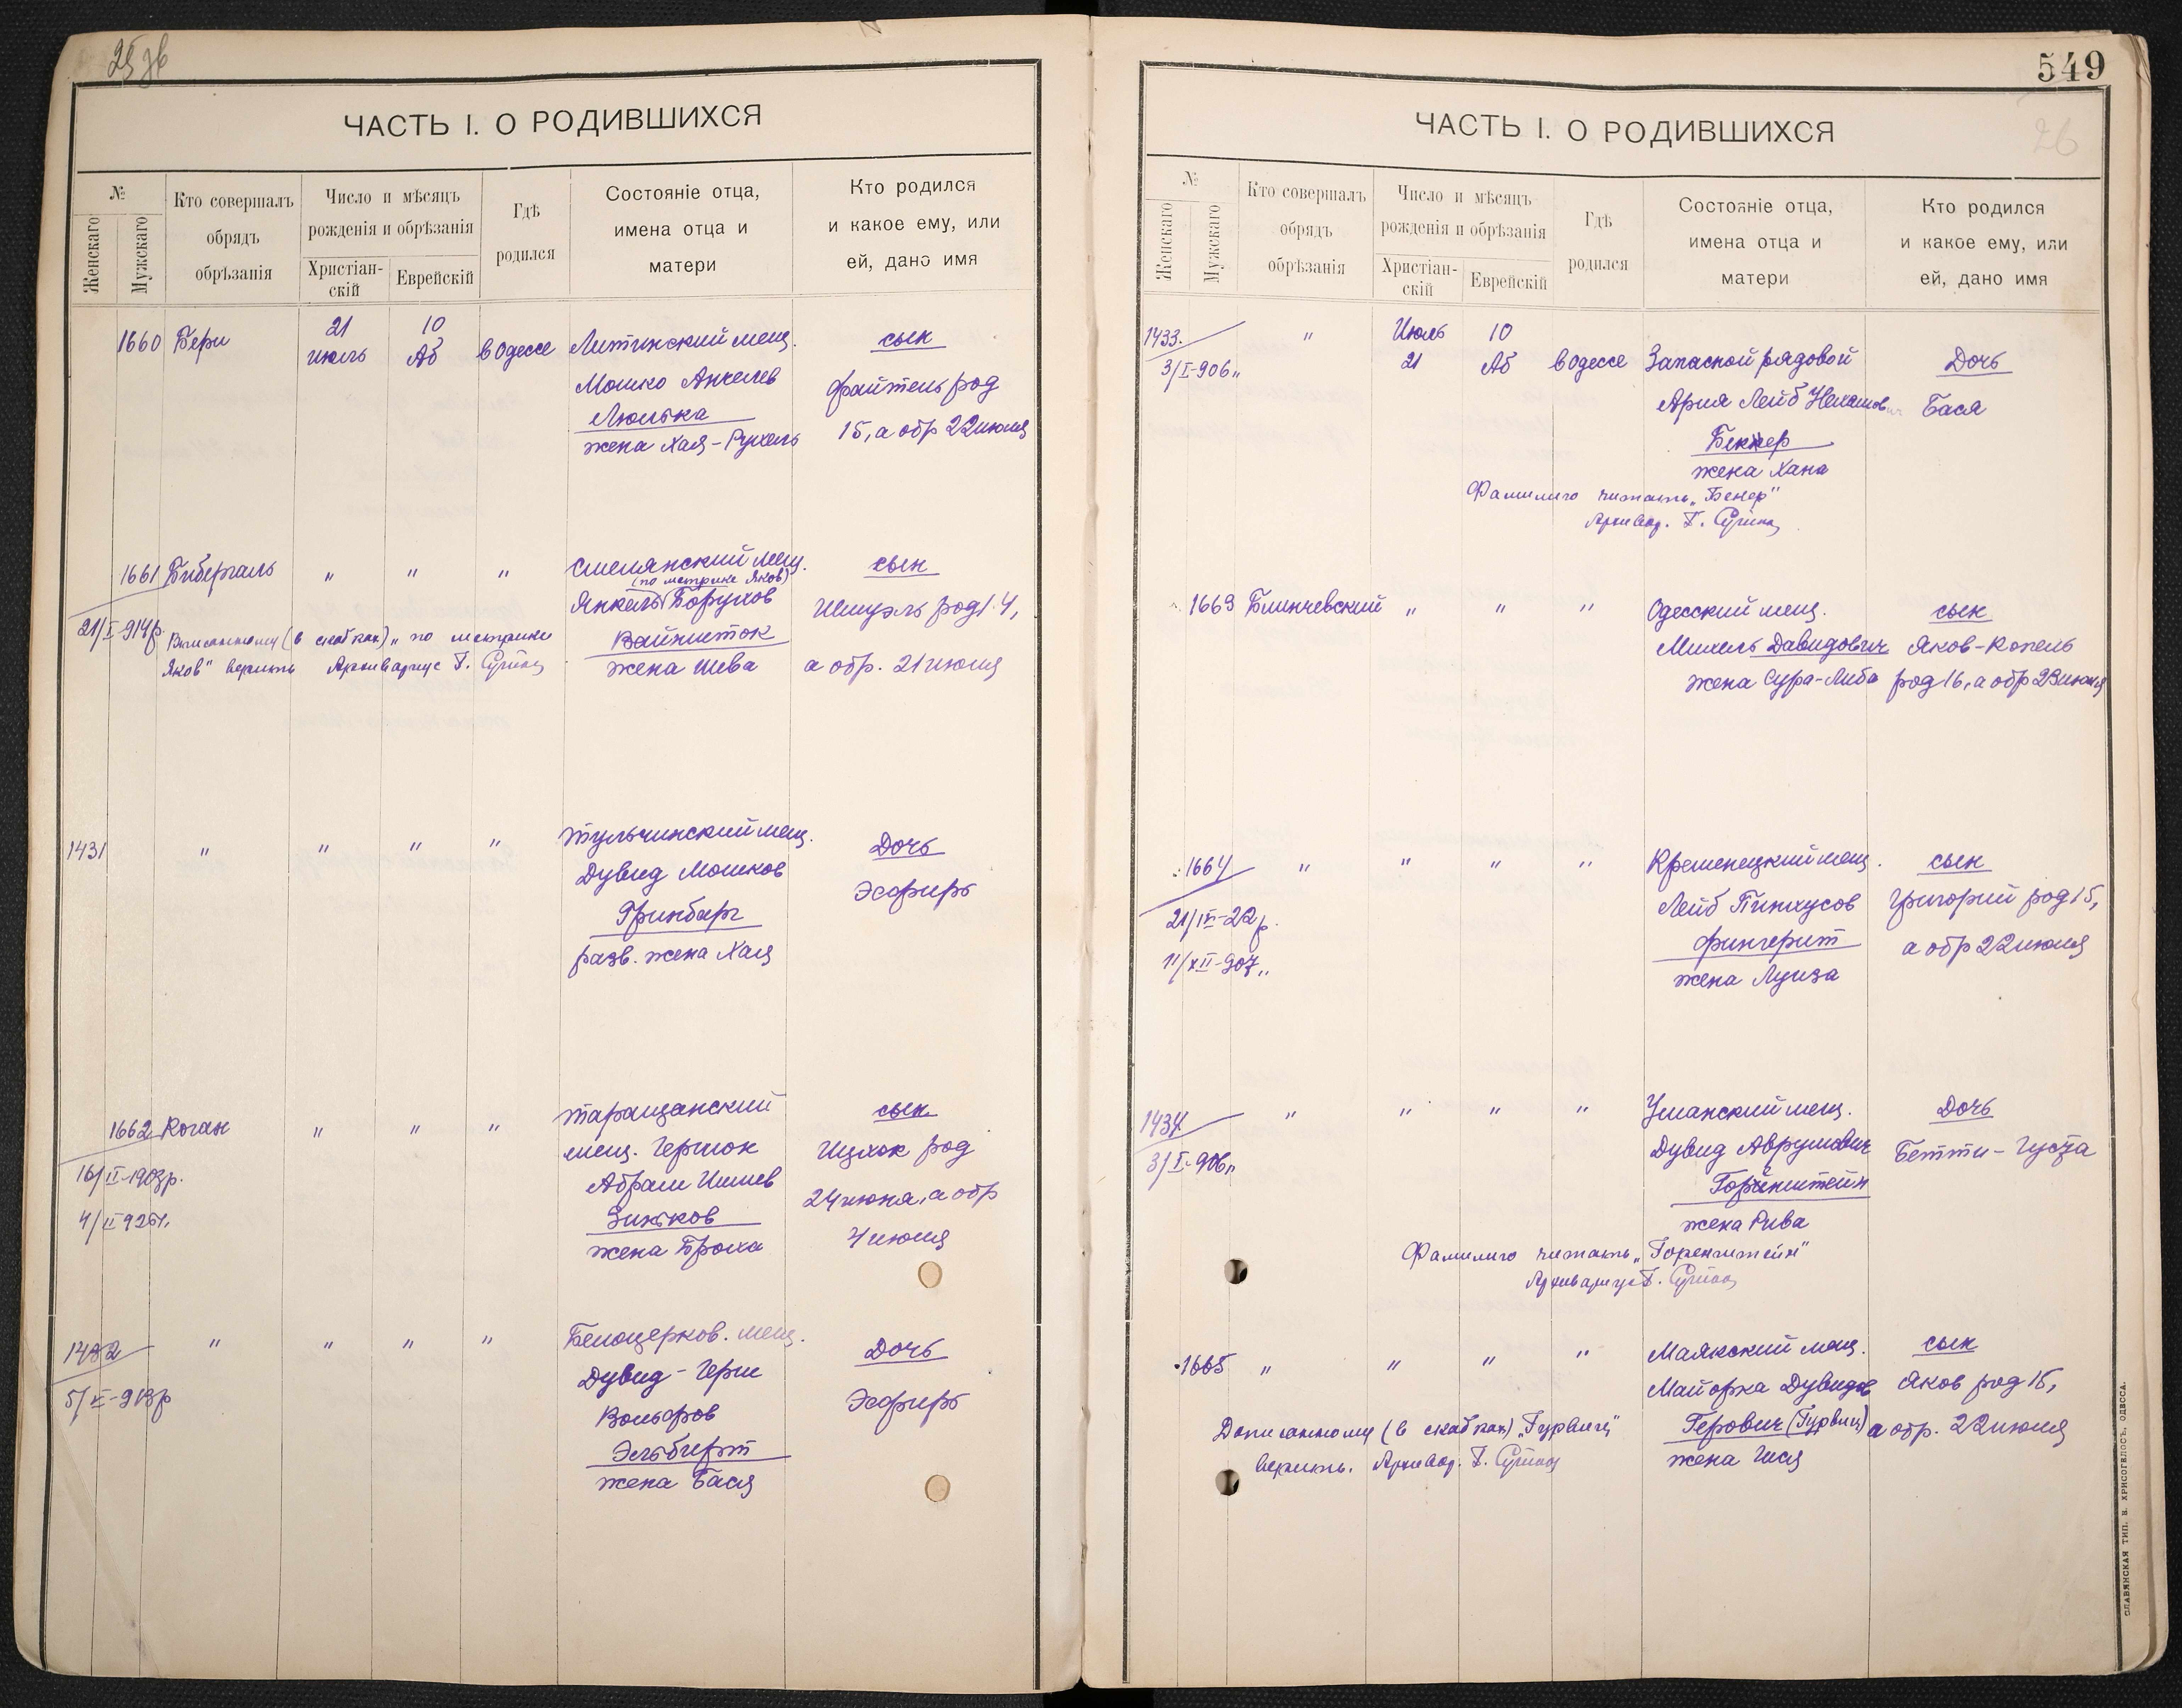 25 зв
ЧАСТЬ I. О РОДИВШИХСЯ
№
Женскаго
Мужскаго
Кто совершалъ
обрядъ
обрѣзанія
Число и мѣсяцъ
рожденія и обрѣзанія
Христіан-
скій
Еврейскій
Гдѣ
родился
Состояніе отца,
имена отца и
матери
Кто родился
и какое ему, или
ей, дано имя
1660 Бери 21 июль 10 Аб в Одессе Литинский мещ. сын
Мошко Анкелев Файтель род
Люлька 15, а обр 22 июля
жена Хая-Рухель
1661 Бибергаль " " " Смелянский мещ. сын
(по метрике Яков)
Янкель Борухов Шмуэль род 14,
21/I-914р. Вписанному (в скобках) „по метрике Вайншток
Яков" верить Архивариус Г. жена Шева а обр. 21 июля
1431 " " " " Тульчинский мещ. Дочь
Дувид Мошков Эсфирь
Гринбарг
разв. жена Хая
1662 Коган " " " Таращанский сын
16/II-1903р. мещ. Гершок Ицхок род
4/II 926г. Абрам Ишиев 24 июня, а обр
Зиньков 4 июля
жена Броха
1432 " " " " Белоцерков. мещ. Дочь
5/V-913р Дувид-Герш Эсфирь
Вольфов
Эльберт
жена Бася
549
26
ЧАСТЬ I. О РОДИВШИХСЯ
№
Женскаго
Мужскаго
Кто совершалъ
обрядъ
обрѣзанія
Число и мѣсяцъ
рожденія и обрѣзанія
Христіан-
скій
Еврейскій
Гдѣ
родился
Состояніе отца,
имена отца и
матери
Кто родился
и какое ему, или
ей, дано имя
1433. " Июль 21 10 Аб в Одессе Запасной рядовой Дочь
3/I-906 „ Ария Лейб Бася
Беккер
жена Хана
Фамилию читать „Бекер"
Архивар. Г.
1663 Блинчевский " " " Одесский мещ. сын
Михель Давидович Яков-Копель
жена Сура-Либа род 16, а обр 23 июля
1664 " " " " Кременецкий мещ. сын
21/IV-22р. Лейб Пинхусов Григорий род 15,
11/XII-907 „ Фингерит а обр 22 июля
жена Луиза
1434 " " " " Уманский мещ. Дочь
3/I-906 „ Дувид Аврумович Бетти-Густа
Горенштейн
жена Рива
Фамилию читать „Горенштейн"
Архивариус Г.
1665 " " " " Маякский мещ. сын
Майорка Дувидов Яков род 15,
Дописанному (в скобках) „Гурвич" Герович (Гурвич) а обр. 22 июля
верить. Архивар. Г. жена Ися
СЛАВЯНСКАЯ ТИП. Н. ХРИСОГЕЛОСЪ, ОДЕССА.